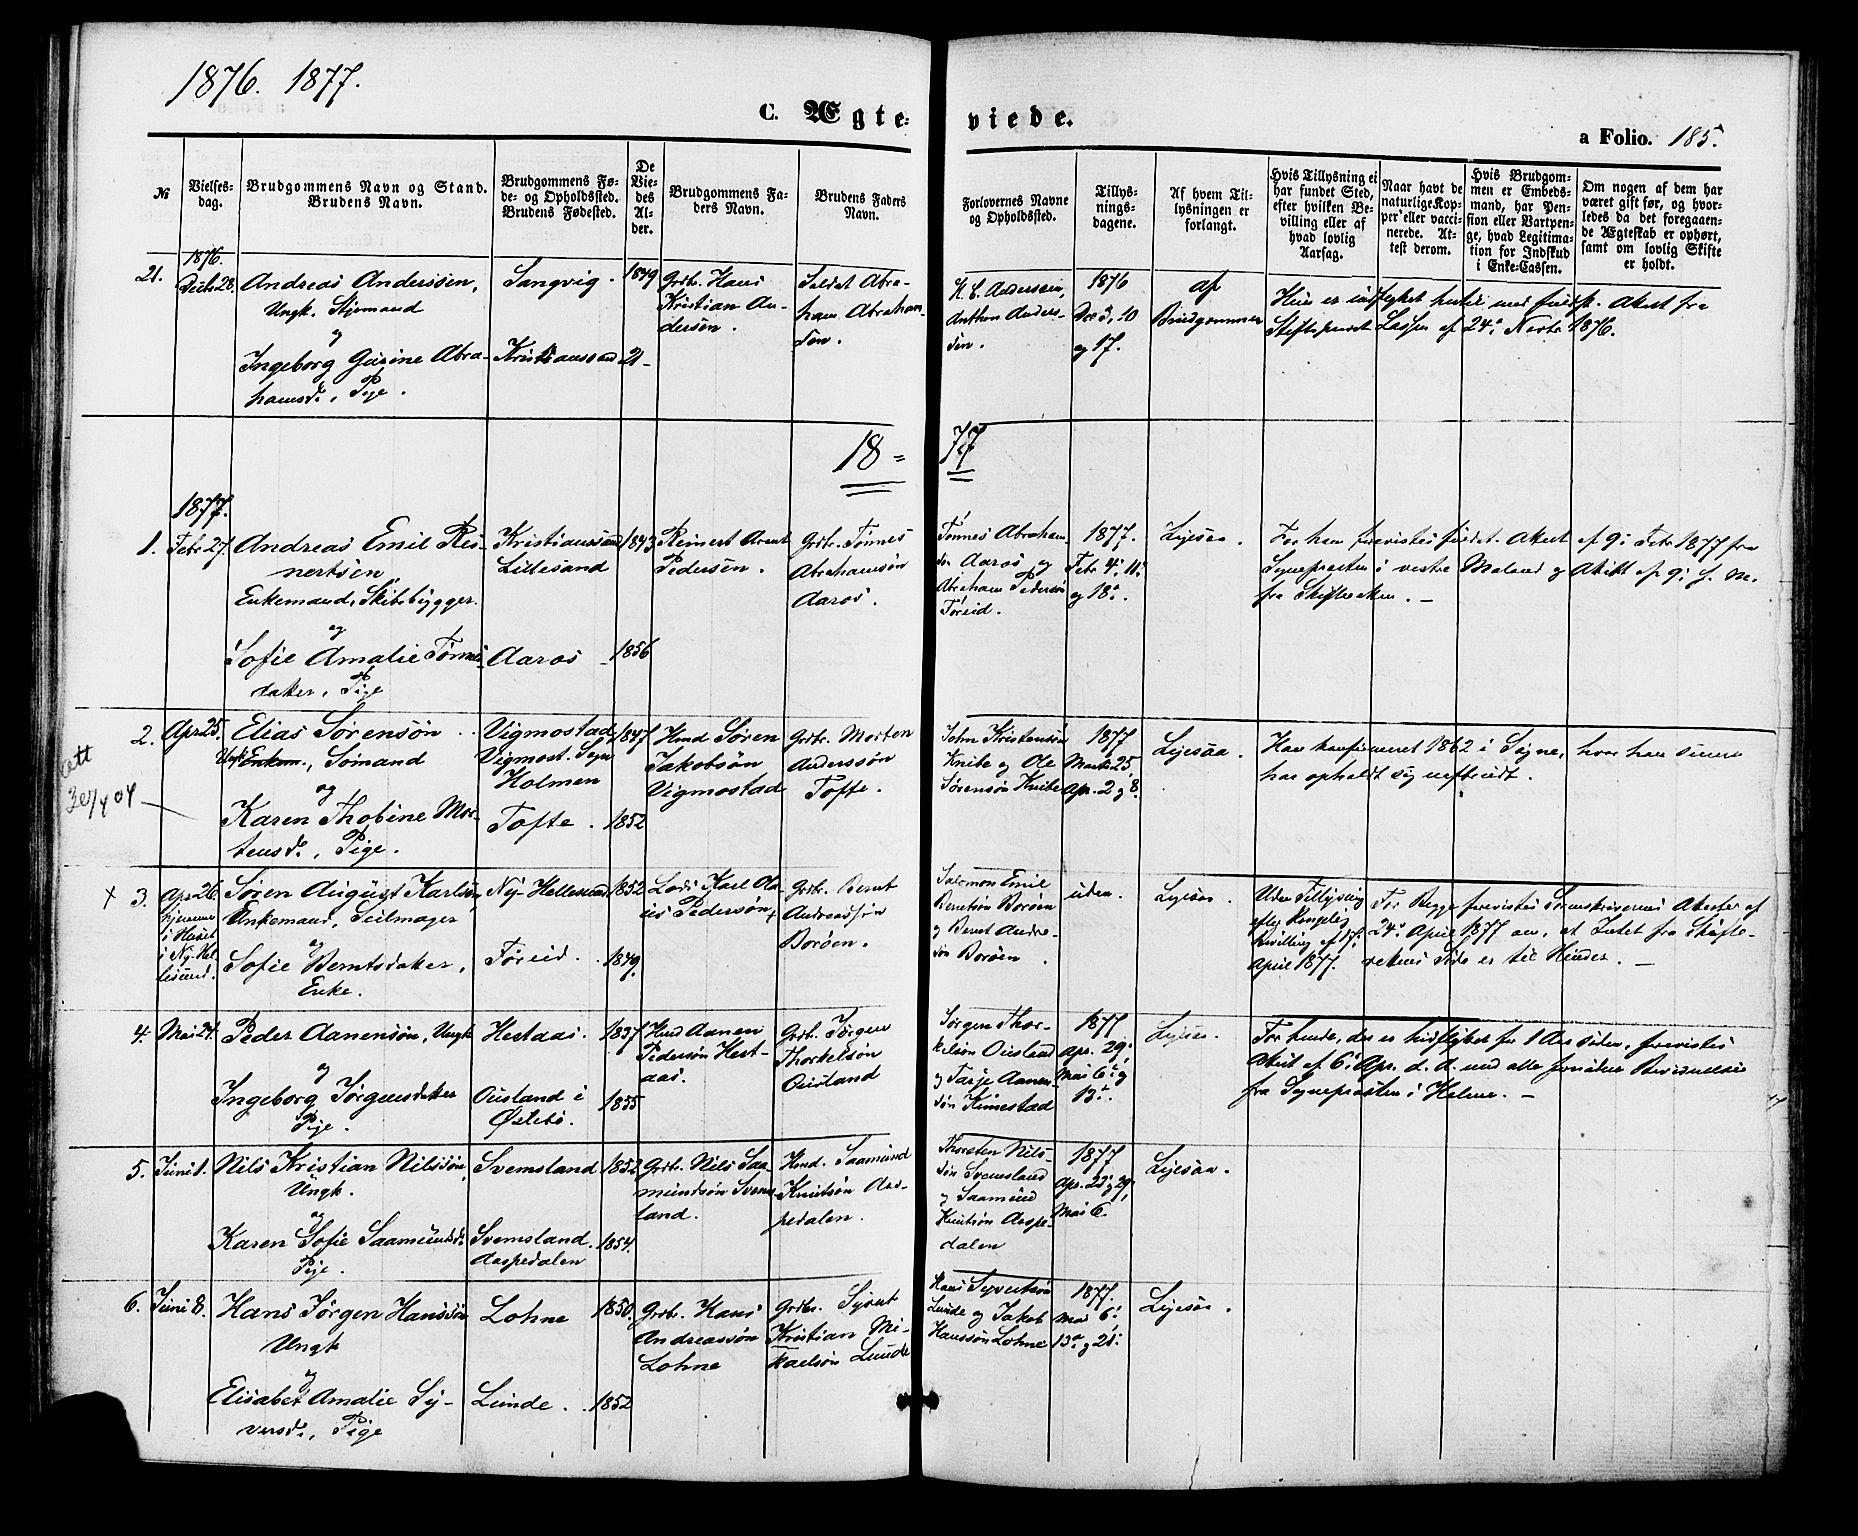 1876. 1877.
C. Ægte-
viede.
a Folio. 185.
No
Vielses-
dag.
Brudgommens Navn og Stand.
Brudens Navn.
Brudgommens Fø-
de- og Opholdssted.
Brudens Fødested.
De
Vie-
des
Al-
der.
Brudgommens Fa-
ders Navn.
Brudens Faders
Navn.
Forlovernes Navne
og Opholdssted.
Tillys-
nings-
dagene.
Af hvem Til-
lysningen er
forlangt.
Hvis Tillysning ei
har fundet Sted,
efter hvilken Be-
villing eller af
hvad lovlig
Aarsag.
Naar havt de
naturlige Kop-
per eller vacci-
nerede. At-
test derom.
Hvis Brudgom-
men er Embeds-
mand, har Pen-
sion eller Vartpen-
ge, hvad Legitima-
tion for Indskud
i Enke-Cassen.
Om nogen af dem har
været gift før, og hvor-
ledes da det foregaaen-
de Ægteskab er ophørt,
samt om lovlig Skifte
er holdt.
1876.
21.
Decbr 28.
Andreas Anderssen,
Ungk. Stjrmand
og
Ingeborg Gusine Abra-
hamsd., Pige.
Sangvig.
Kristianssand
1849
21
Grdbr. Hans
Kristian An-
dersøn.
Soldat Abra-
ham Abraham-
søn.
H. C. Anderssen,
Anthon Anders-
søn.
1876
Dec 3, 10
og 17.
af
Brudgommen
Hun er indflyttet hertil med forsk. Attest fra
Stiftsprovst Lassen af 24. Novbr 1876.
18 = 77
1877.
1.
Febr 27.
Andreas Emil Rei-
nertsen,
Enkemand, Skibsbygger.
og
Sofie Amalie Tønnes-
datter, Pige
Kristianssand
Lillesand
Aaros
1843
1856
Reinert Arent
Pedersøn.
Grdbr. Tønnes
Abrahamsøn
Aaros.
Tønnes Abraham
sn Aaros og
Abraham Pedersøn
Føreid.
1877.
Febr 4, 11
og 18.
Lysaa.
For ham forevistes fuldst. Attest af 9. Febr 1877 fra
Sognepresten i vestre Moland og Attest af 9. s. M.
fra Skifteretten.
2.
Apr 25.
Elias Sørensøn
Ungk. Enkem., Sømand
og
Karen Thobine Mor-
tensd., Pige.
att
30/4 04
Vigmostad
Vigmost. Sogn
Holmen
Tofte.
1847
1852
Hmd Søren
Jakobsøn
Vigmostad
Grdbr. Morten
Anderssøn
Tofte.
John Kristensøn
Knibe og Ole
Sørensøn Knibe
1877
Marts 25,
Apr. 2 og 8.
Lysaa.
Han konfirmeret 1862 i Søgne, hvor han siden
har opholdt sig uafbrudt.
x 3.
Apr 26.
hjemme
i Huset
i Ny-Hel-
lesund.
Søren August Karlsen,
Enkemand, Seilmager
og
Sofie Berntsdatter,
Enke.
Ny-Hellesund
Føreid.
1852
1849.
Lods Karl Ola-
us Pedersøn
Grdbr. Bernt
Andreassøn
Borøen.
Salomon Emil
Berntsøn Borøen
og Bernt Andre-
søn Borøen.
uden.
Lysaa.
Uden Tillysning
efter Kongelig
Bevilling af 17.
April 1877.
For Begge forevistes Sorenskriverens Attester af
24. April 1877 om, at Intet fra Skifte-
rettens Side er til Hinder.
4.
Mai 24.
Peder Aanensøn, Ungk
og
Ingeborg Jørgensdatter
Pige.
Hestaas
Ousland i
Øslebø.
1837
1855
Hmd Aanen
Pedersøn Hest-
aas.
Grdbr. Jørgen
Thorkelsøn
Ousland
Jørgen Thor-
kelsøn Ousland
og Tarje Aanen-
søn Kimestad
1877
Apr. 29,
Mai 6 og
13.
Lysaa.
For hende, der er hidflyttet for 1 Aar siden, forevistes
Attest af 6. Apr. d. A. med alle fornødne Bevidnelser
fra Sognepresten i Holme.
5.
Juni 1.
Nils Kristian Nilssøn,
Ungk.
og
Karen Sofie Saamundsd.
Pige.
Svemsland
Svemsland.
Aaspedalen
1852
1854.
Grdbr. Nils Saa-
mundsøn Svems-
land.
Hmd. Saamund
Knutsøn Aas-
pedalen.
Thorsten Nils-
søn Svemsland
og Saamund
Knutsøn Aaspe-
dalen
1877
Apr. 22 og 29,
Mai 6.
Lysaa.
6.
Juni 8.
Hans Jørgen Hanssøn
Ungk
og
Elisabet Amalie Sy-
versd., Pige
Lohne
Lunde.
1850.
1852
Grdbr. Hans
Andreassøn
Lohne
Grdbr. Syvert
Kristian Mi-
kaelsøn Lunde
Hans Syvertsøn
Lunde og Jakob
Hanssøn Lohne
1877.
Mai 6,
13 og 21.
Lysaa.